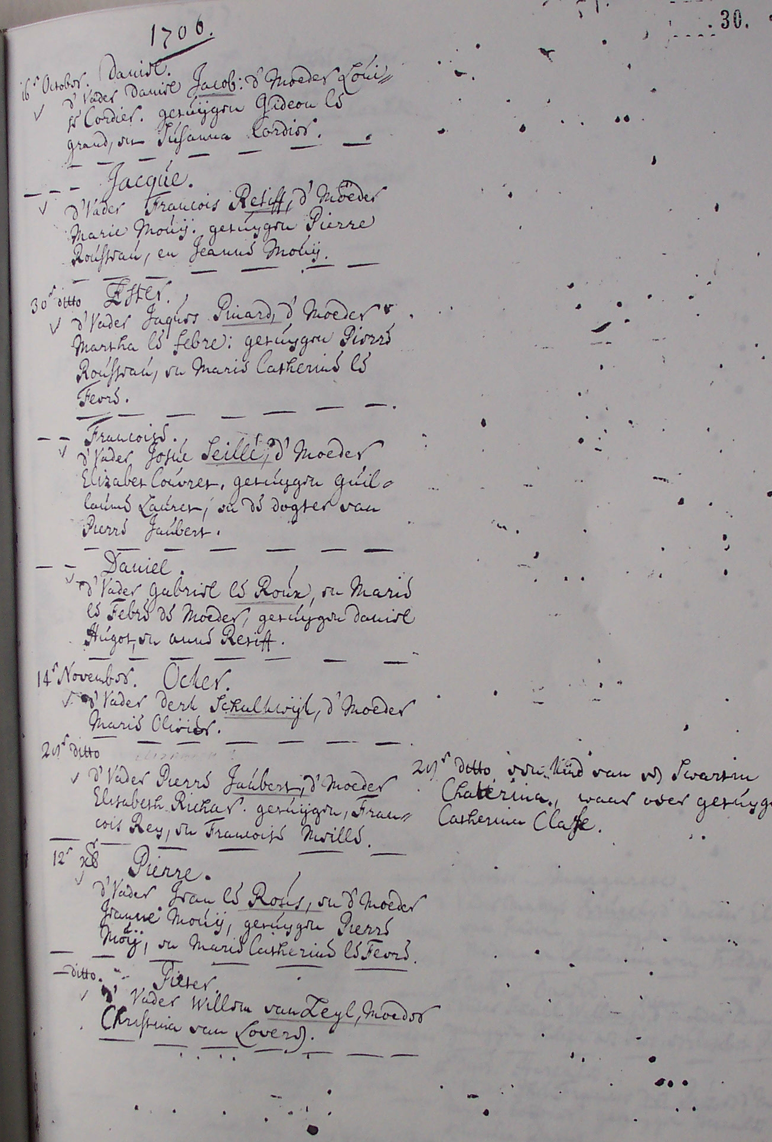 1706.
30.
16ʳ October. Daniel.
d'Vader Daniel Jacob: d'Moeder Loui=
se Cordier. getuijgen Gideon le
grand, en Susanna Cordier.
Jacque.
d'Vader Francois Retiff, d'Moeder
Marie Mouij. getuijgen Pierre
Rousseau, en Jeanne Mouij.
30ʳ ditto Ester.
d'Vader Jaques Pinard, d'Moeder
Martha le febre: getuijgen Pierre
Rousseau, en Marie Catherine le
Fevre.
Francoise.
d'Vader Josue Seillé, d'Moeder
Elizabet Couvret, getuijgen guil=
laume Lauret, en de dogter van
Pierre Jaubert.
Daniel.
d'Vader Gabriel le Roux, en Marie
le Febre de Moeder, getuijgen Daniel
Hugot, en anne Retiff.
14ʳ November. Ocker.
d'Vader Derk Schalkwijk, d'Moeder
Marie Olivier.
29ʳ ditto
d'Vader Pierre Jaubert, d'Moeder
Elisabeth Richar. getuijgen, Fran=
cois Rey, en Francoise Meille.
29ʳ ditto, een kind van de Swartin
Chaterina, waar over getuijg
Catherina Clase.
12ʳ xb Pierre.
d'Vader Jean le Roux, en d'Moeder
Jeanne Mouij, getuijgen Pierre
Moÿ, en Marie Catherine le Fevre.
ditto. Pieter.
d'Vader Willem van Zeyl, Moeder
Christina van Loveren.